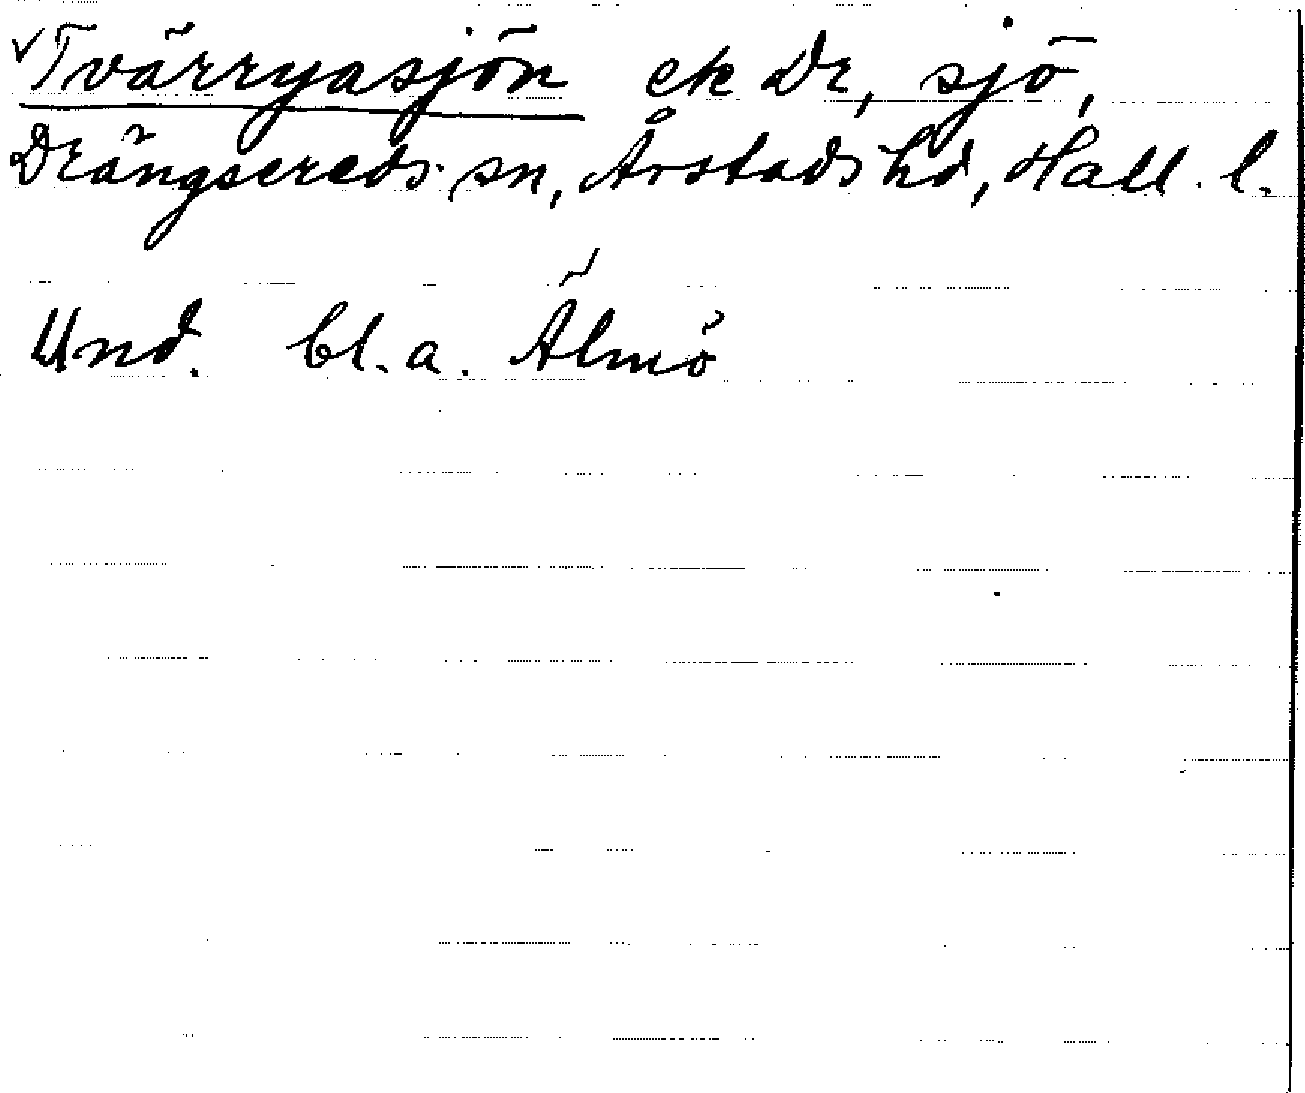 √Tvärryasjön ek Dr, sjö,
Drängsereds sn, Årstads hd, Hall. l.
Und. bl. a. Älmö